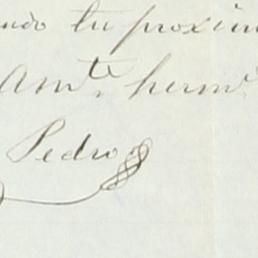 tu proxim
Amte hermo
Pedro